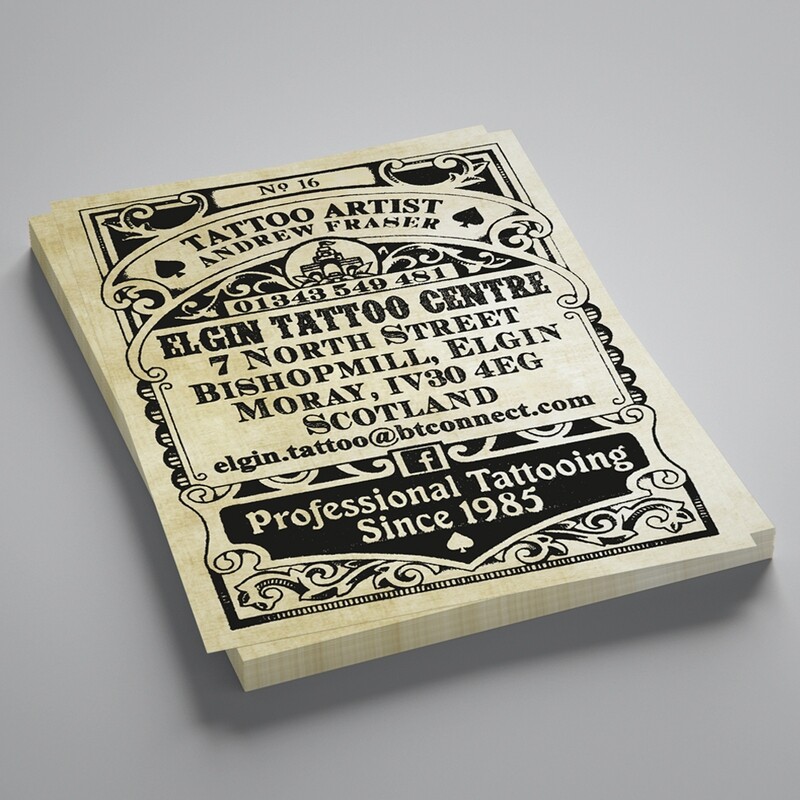 Nº 16
TATTOO ARTIST
ANDREW FRASER
01343 549 481
ELGIN TATTOO CENTRE
7 NORTH STREET
BISHOPMILL, ELGIN
MORAY, IV30 4EG
SCOTLAND
elgin.tattoo@btconnect.com
f
Professional Tattooing
Since 1985